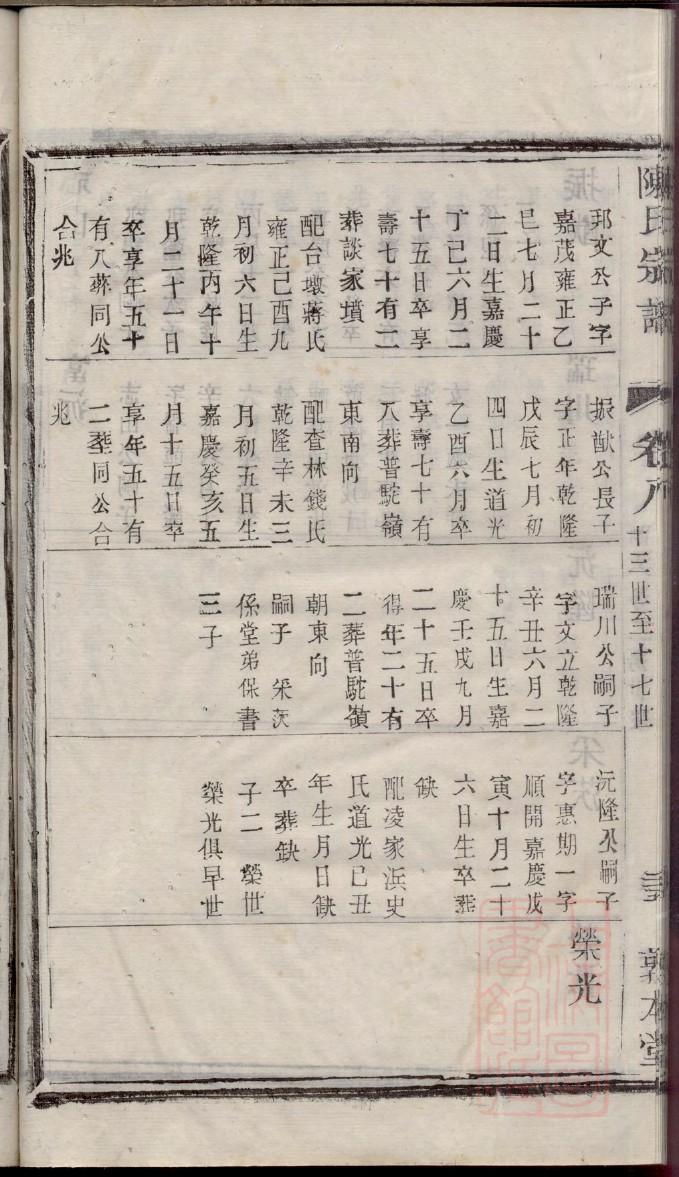 陳氏宗譜
卷八
十三世至十七世
敦本堂
邦文公子字
嘉茂雍正乙
巳七月二十
二日生嘉慶
丁巳六月二
十五日卒享
壽七十有二
葬談家墳
配台壞蔣氏
雍正己酉九
月初六日生
乾隆丙午十
月二十一日
卒享年五十
有八葬同公
合兆
振猷公長子
字正年乾隆
戊辰七月初
四日生道光
乙酉六月卒
享壽七十有
八葬普駝嶺
東南向
配查林錢氏
乾隆辛未三
月初五日生
嘉慶癸亥五
月十五日卒
享年五十有
二葬同公合
兆
瑞川公嗣子
字文立乾隆
辛丑六月二
十五日生嘉
慶壬戌九月
二十五日卒
得年二十有
二葬普駝嶺
朝東向
嗣子 采茨
係堂弟保書
三子
沅隆公嗣子
字惠期一字
順開嘉慶戊
寅十月二十
六日生卒葬
缺
配凌家浜史
氏道光己丑
年生月日缺
卒葬缺
子二 榮世
榮光俱早世
榮光